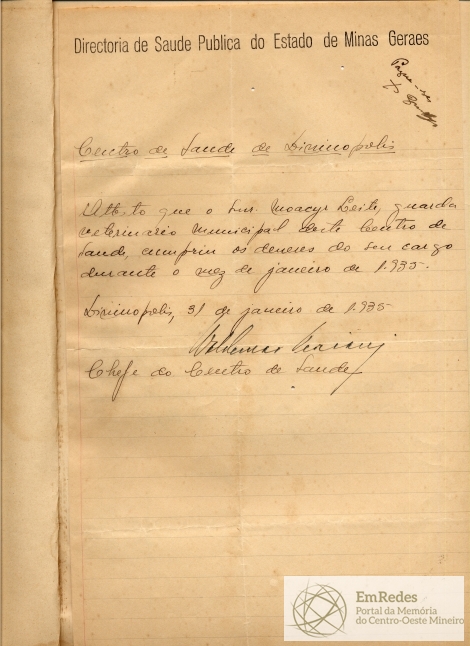 Directoria de Saude Publica do Estado de Minas Geraes
Pague-se
Centro de Saude de Divinopolis
Attesto que o Snr. Moacyr Leite, guarda
veterinario municipal deste Centro de
Saude, cumpriu os deveres do seu cargo
durante o mez de janeiro de 1.935.
Divinopolis, 31 de janeiro de 1.935
Waldemar
Chefe do Centro de Saude
EmRedes
Portal da Memória
do Centro-Oeste Mineiro